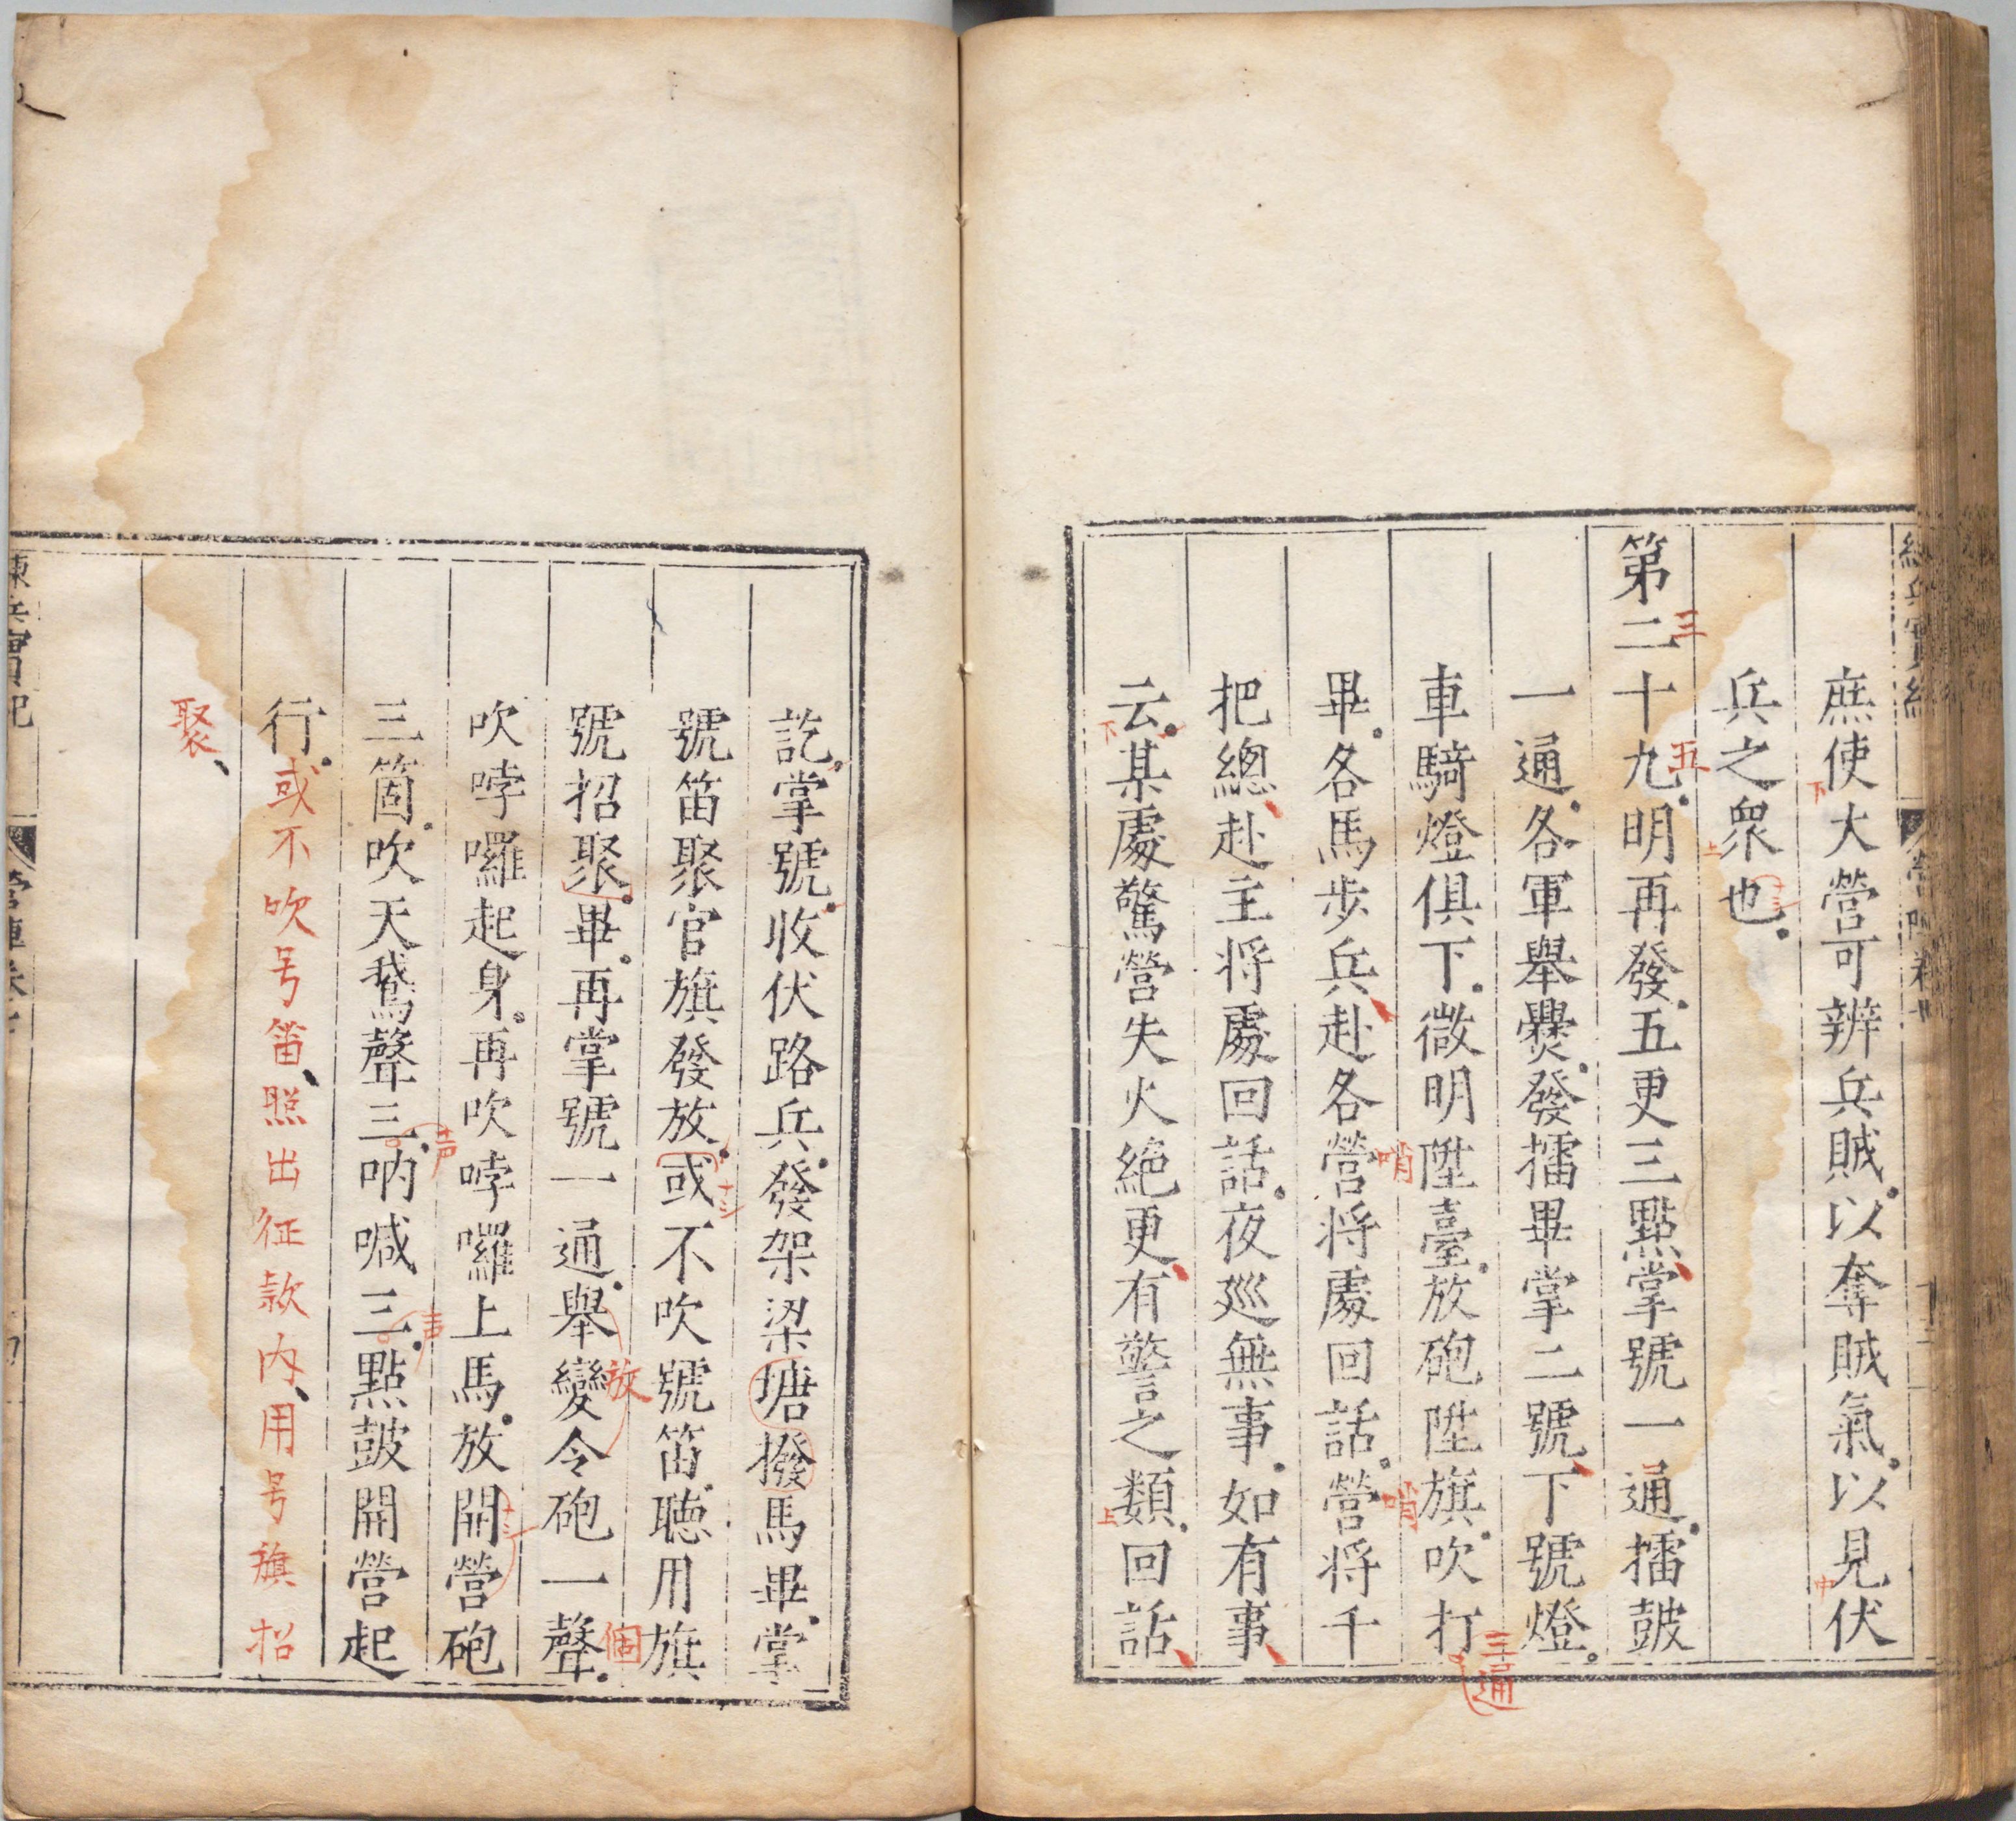 庶使大營可辨兵賊以奪賊氣以見伏
兵之衆也
第二十九明再發五更三點掌號一通擂鼓
一通各軍舉爨發擂畢掌二號下號燈
車騎燈俱下微明陞臺放砲陞旗吹打
畢各馬步兵赴各營將處回話營將千
把總赴主將處回話夜廵無事如有事
云某處驚營失火絶更有警之類回話
三
五
下
上
中
哨
哨
三通
下
上
訖掌號收伏路兵發架梁塘撥馬畢掌
號笛聚官旗發放或不吹號笛聽用旗
號招聚畢再掌號一通舉變令砲一聲
吹哱囉起身再吹哱囉上馬放開營砲
三箇吹天鵝聲三吶喊三點鼓開營起
行或不吹号笛照出征款内用号旗招
聚
放
個
声
声